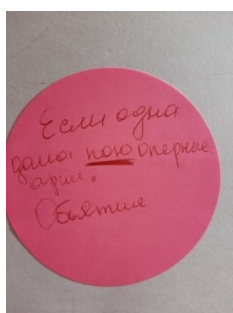 Если одна
дома пою оперные
арии.
Объятие